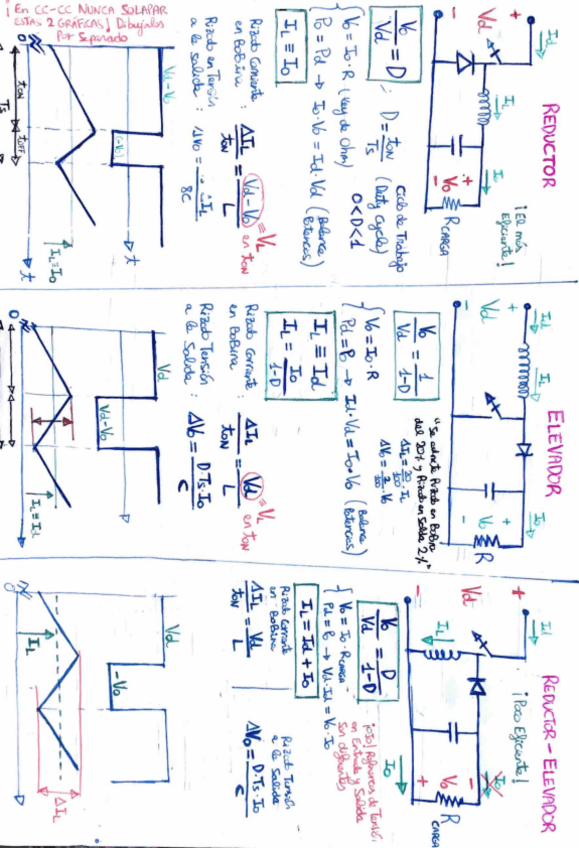 REDUCTOR
¡El más
Eficiente!
Id
+
Vd
-
IL
Io
+
Vo
-
RCARGA
Vo/Vd = D ; D = ton/Ts (Duty Cycle)
Ciclo de Trabajo
0<D<1
{ Vo = Io·R (Ley de Ohm)
Po = Pd → Io·Vo = Id·Vd (Balance Potencias)
IL ≡ Io
Rizado Corriente en Bobina : ΔIL/ton = (Vd-Vo)/L
= VL en ton
Rizado en Tensión a la salida :
8C
¡En CC-CC NUNCA SOLAPAR
ESTAS 2 GRÁFICAS! Dibujarlas
Por Separado
Vd-Vo
(-Vo)
t
IL≡Io
t
0
ton
toff
Ts
ELEVADOR
Id
+
Vd
-
IL
Io
+
Vo
-
R
"Se admite Rizado en Bobina
del 20% y Rizado en Salida 2%"
ΔIL = 20/100 · IL
ΔVo = 2/100 · Vo
Vo/Vd = 1/(1-D)
{ Vo = Io·R
Pd = Po → Id·Vd = Io·Vo (Balance Potencias)
IL ≡ Id
IL = Io/(1-D)
Rizado Corriente en Bobina : ΔIL/ton = Vd/L
= VL en ton
Rizado Tensión a la Salida : ΔVo = D·Ts·Io/C
Vd
Vd-Vo
IL≡Id
0
REDUCTOR - ELEVADOR
¡Poco Eficiente!
Id
+
Vd
-
IL
Io
-
Vo
+
R
CARGA
Io
Vo/Vd = D/(1-D)
¡OJO! Referencias de Tensión
en Entrada y Salida
son diferentes
{ Vo = Io·RCARGA
Pd = Po → Vd·Id = Vo·Io
IL = Id + Io
Rizado Corriente
en Bobina
ΔIL/ton = Vd/L
Rizado Tensión
a la Salida
ΔVo = D·Ts·Io/C
Vd
-Vo
IL
ΔIL
0